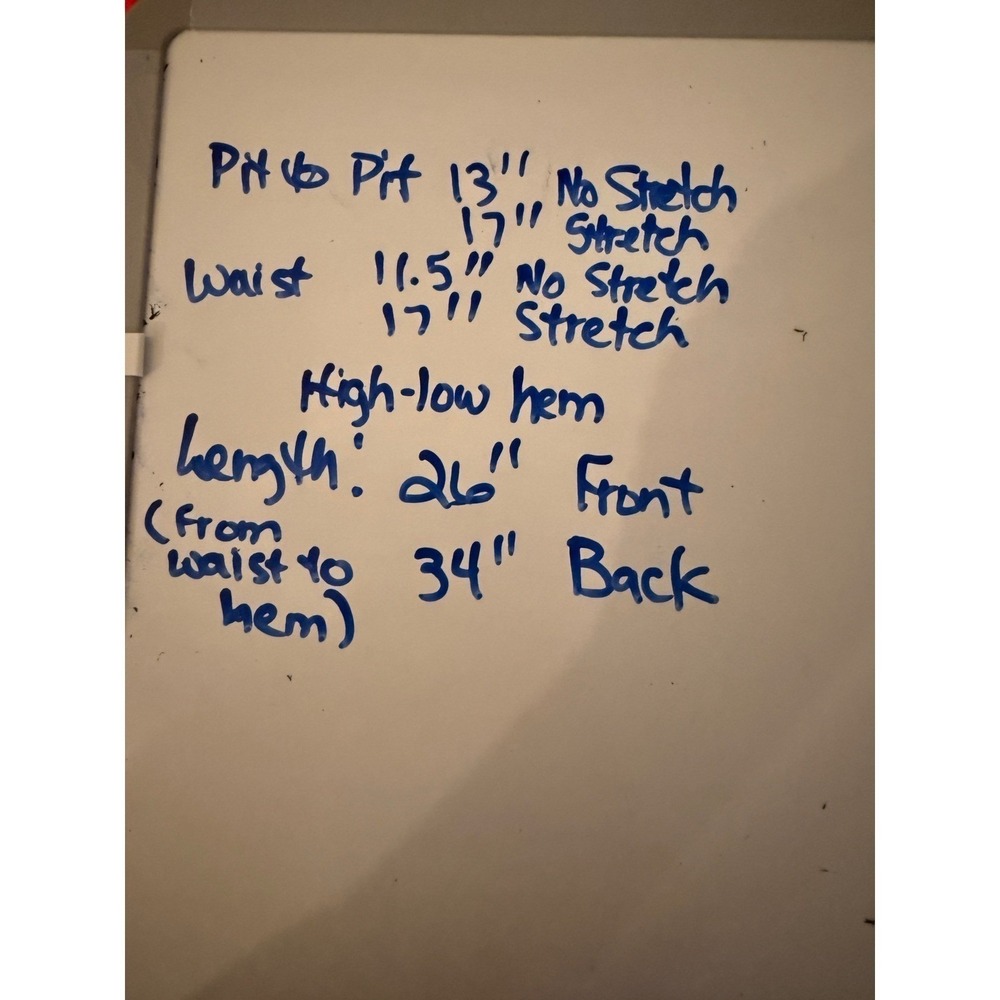 Pit to Pit 13" No Stretch
17" Stretch
Waist 11.5" No Stretch
17" Stretch
High-low hem
Length: 26" Front
(From
waist to 34" Back
hem)